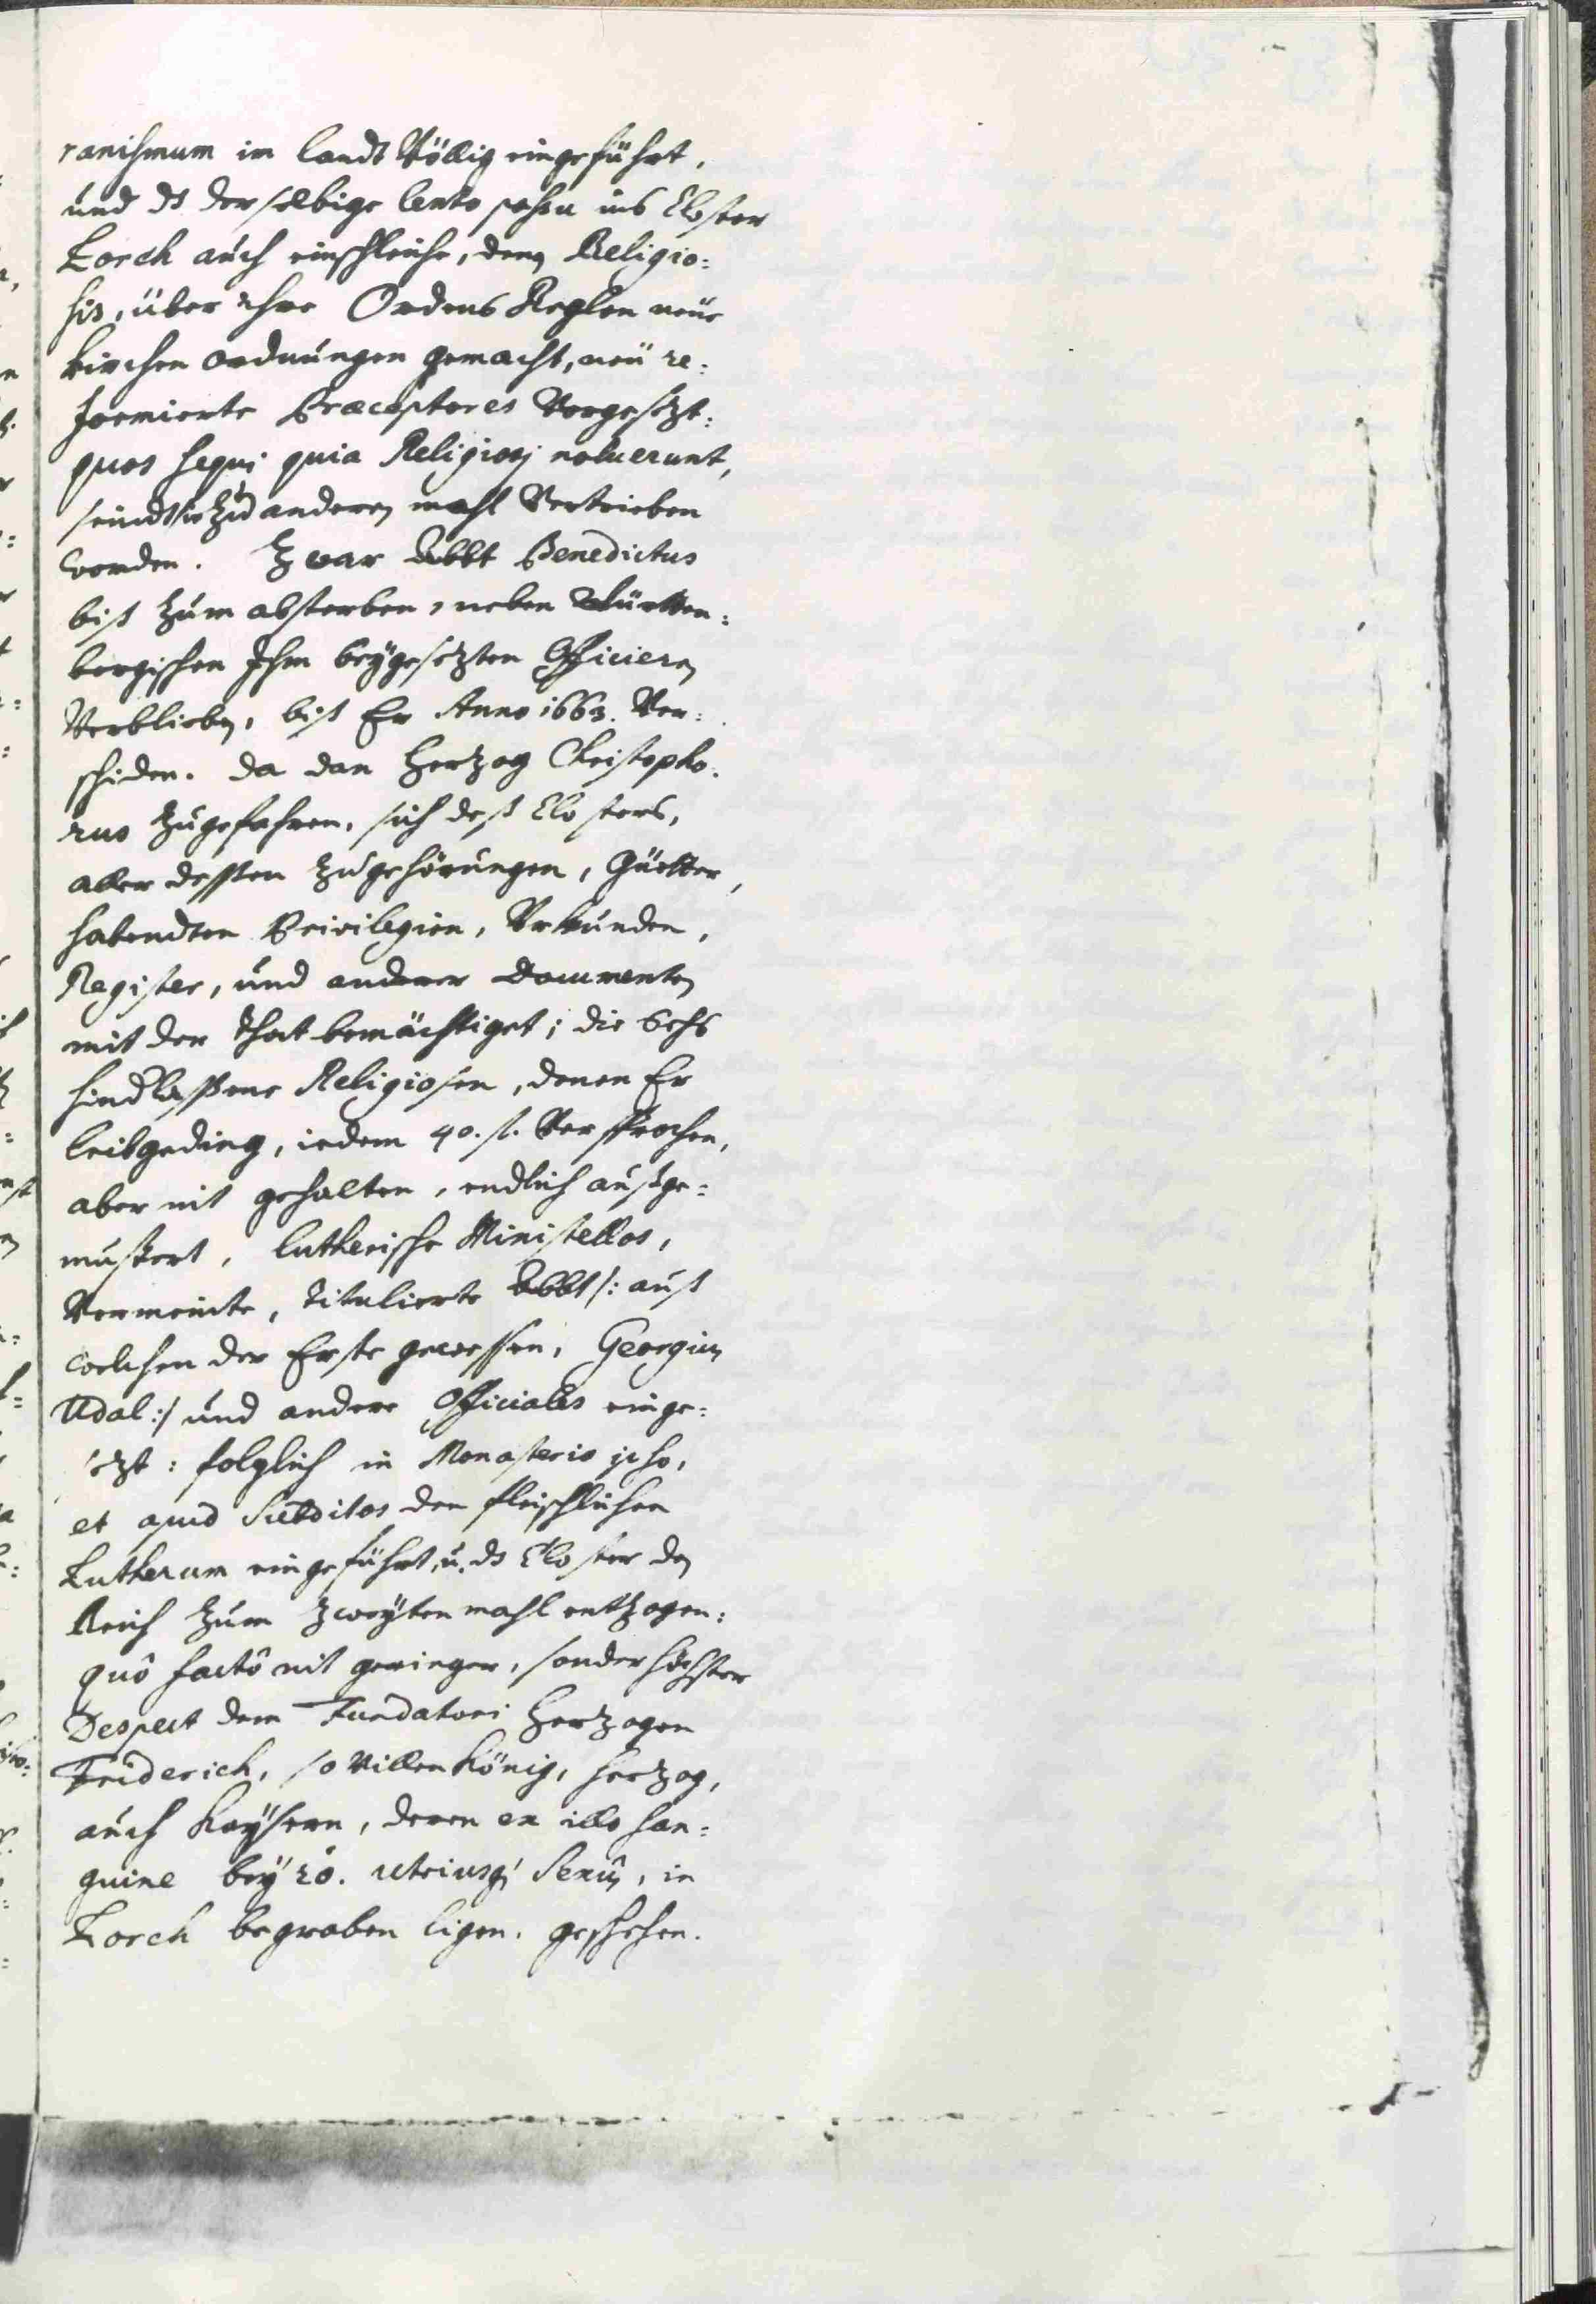 ranismum im landt Völlig eingeführt,
und ds derselbige lento passu ins Closter
Lorch auch einschleiche, den Religio=
sis, über ihre Ordens Reglen neüe
kirchen ordnungen gemacht, neü re=
formierte Præceptores Vorgesezt:
quos sequi quia Religiosj noluerunt,
seindt sie zu anderen mahl Vertrieben
worden. Zwar Abbt Benedictus
biß zum absterben, neben Württen=
bergischen Ihm beygesezten Officieren
Verblieben, biß Er Anno 1663. Ver=
schiden. da dan Herzog Christopho=
rus zugefahren, sich deß Closters,
aller dessen zugehörungen, Güetter,
habendten Privilegien, Vrkunden,
Register, und anderer Documenten
mit der That bemächtiget; die Sechs
hindlassene Religiosen, denen Er
leibgeding, iedem 40. fl. Versprochen,
aber nit gehalten, endlich außge=
mustert, lutherische Ministellos,
Vermeinte, titulierte Abbt /: auß
welchen der Erste gewessen, Georgius
Udal :/ und andere Officiales einge=
sezt: folglich in Monasterio ipso,
et apud Subditos den fleischlichen
Lutherum eingeführt, u. ds Closter dem
Reich zum zweyten mahl entzogen:
quô factô nit geringer, sonder höchster
Despect dem Fundatori Herzogen
Friderich, so Villen König, Herzog,
auch Kaysern, deren ex illo san=
guine bey 20. utriusq; Sexûs, in
Lorch begraben ligen, geschehen.